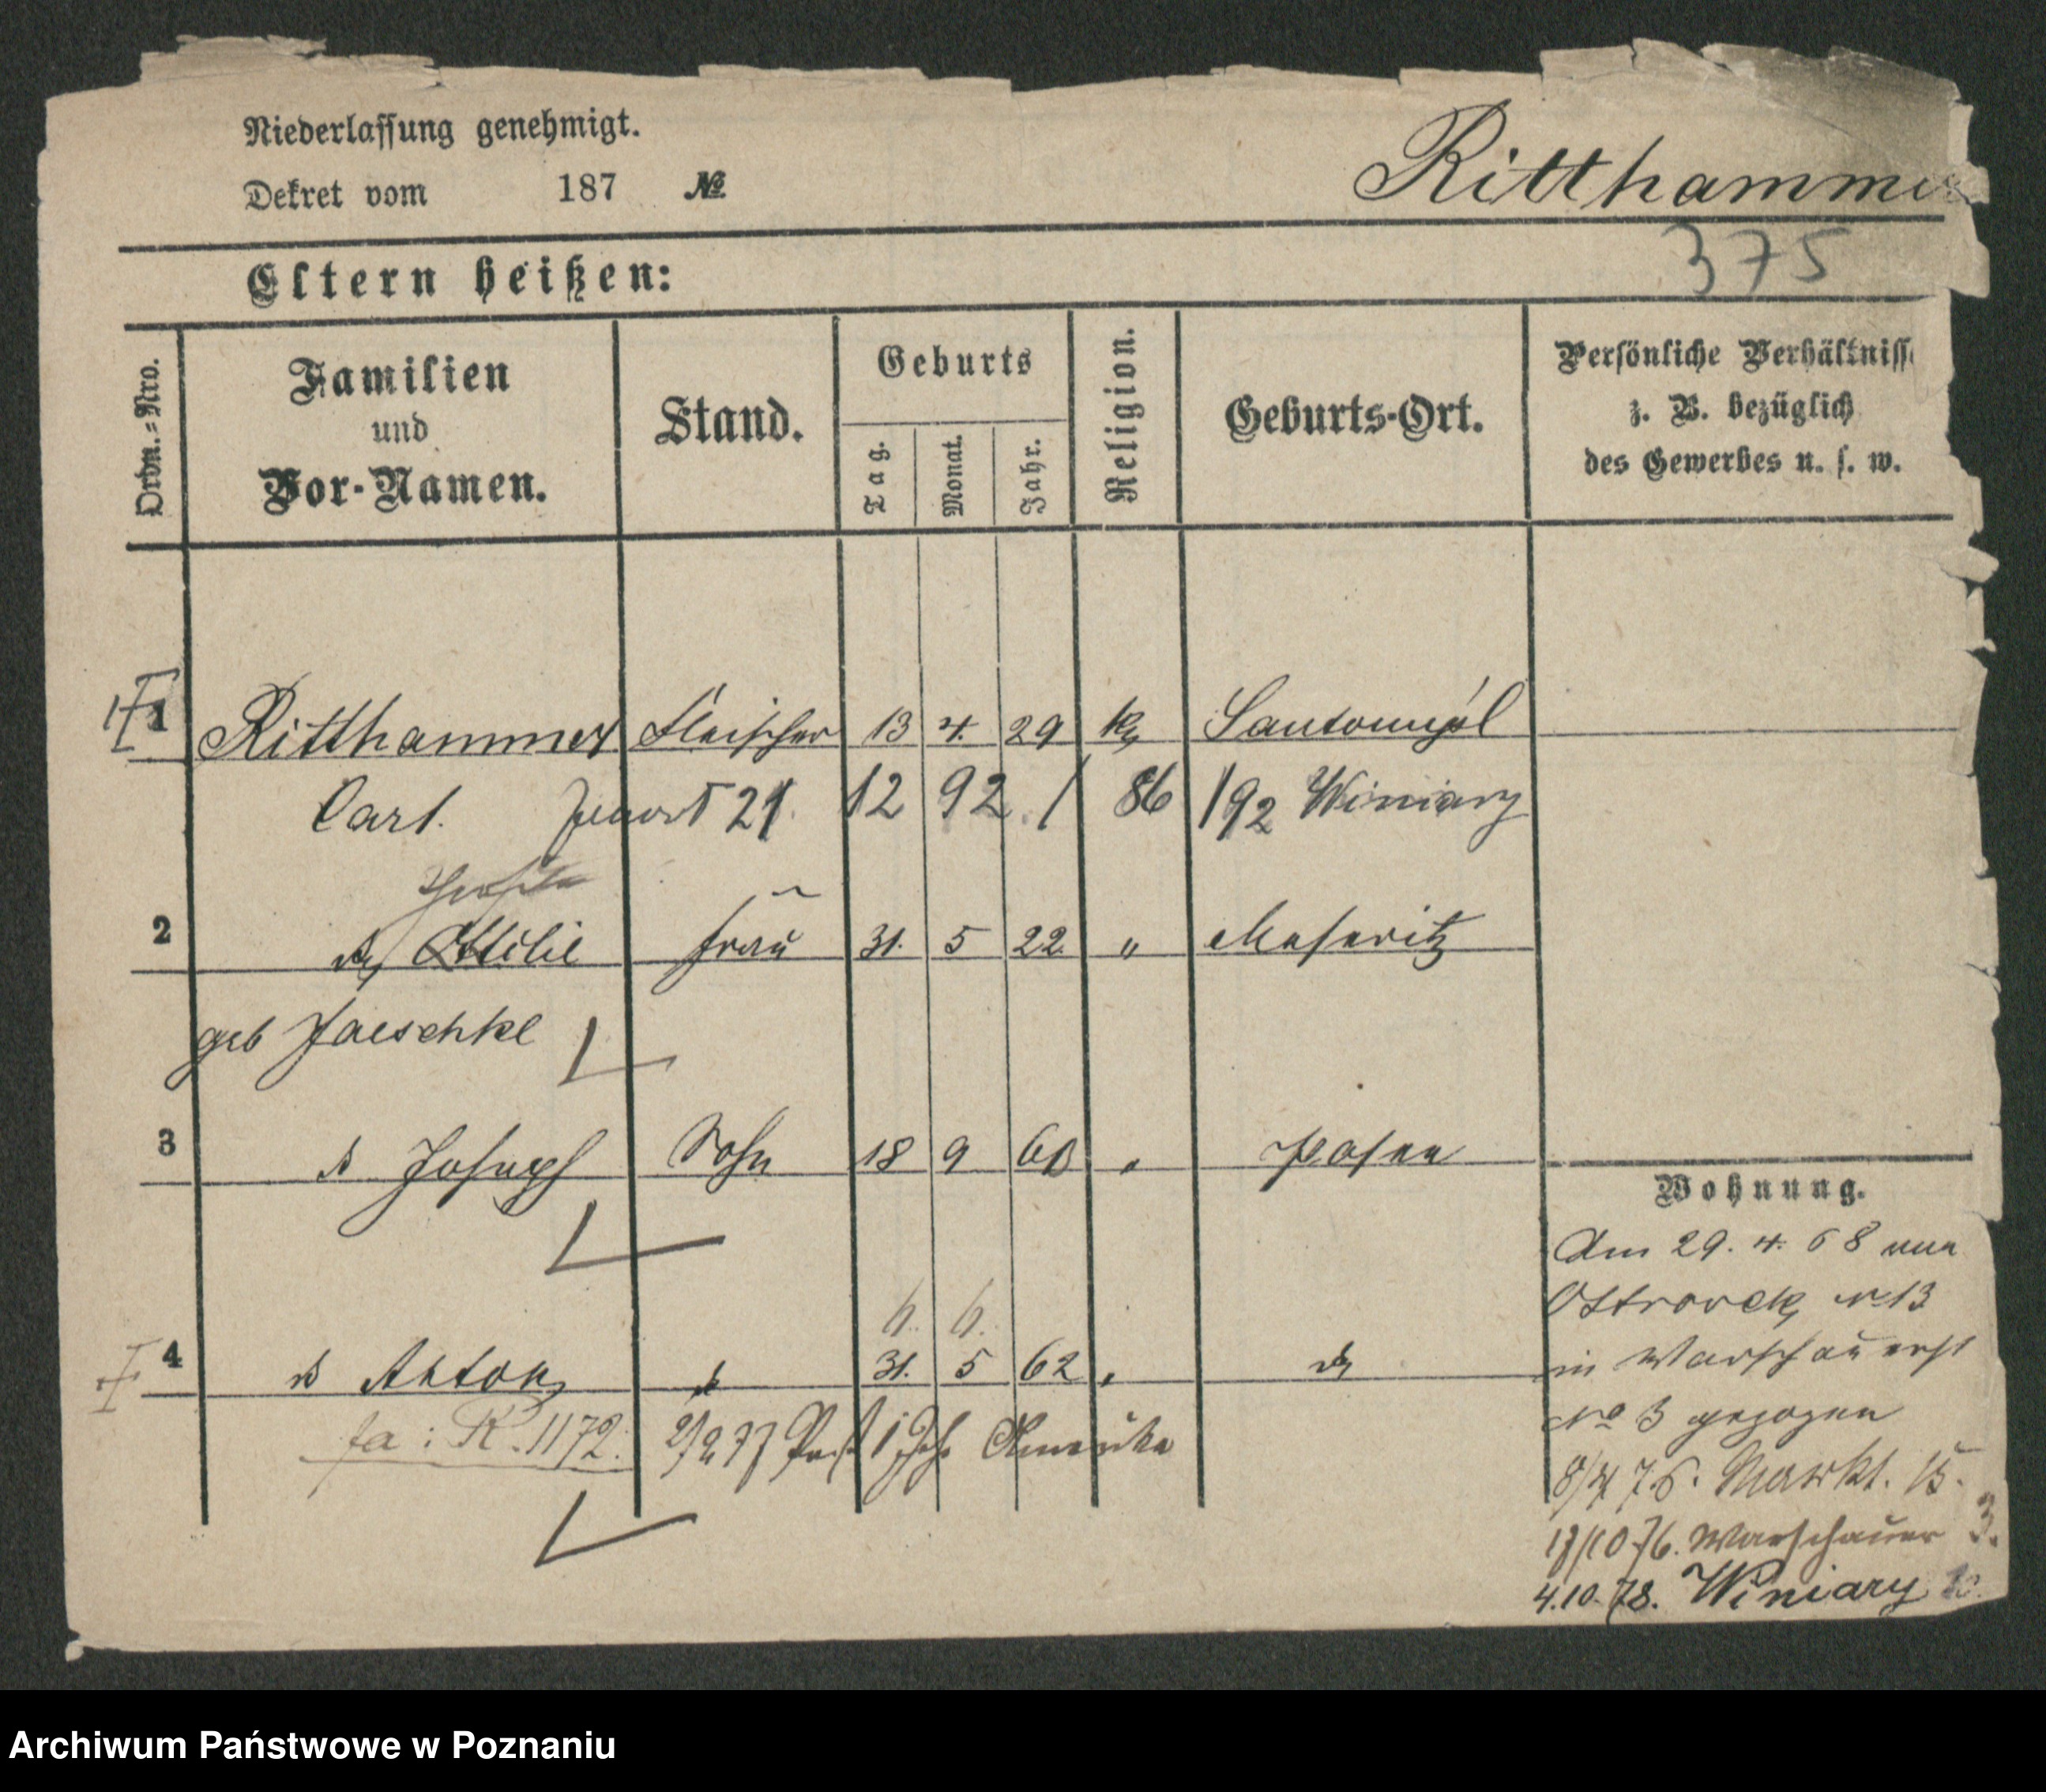 Niederlassung genehmigt.
Dekret vom 187 №
Ritthammer
375
Eltern heißen:
Ordn.-Nro.
Familien und Vor-Namen.
Stand.
Geburts
Tag. Monat. Jahr.
Religion.
Geburts-Ort.
Persönliche Verhältnisse
z. B. bezüglich
des Gewerbes u. s. w.
1 Ritthammer Fleischer 13 4. 29 k. Santomysl
Carl. 21. 12 92 / 86 /92 Winiary
2 Ottilie Frau 31. 5 22 " Meseritz
geb Jaeschke
3 Joseph Sohn 18 9 60 " Posen
6. 6.
4 Anton 31. 5 62 "
fa: R. 1172. 2/2 77 1 Amerika
Wohnung.
Am 29. 4. 68 von
Ostrowek № 13
in Warschauerst
№ 3 gezogen
8/4 76. Markt. 15.
17/10 76. Warschauer 3.
4.10.78. Winiary
Archiwum Państwowe w Poznaniu